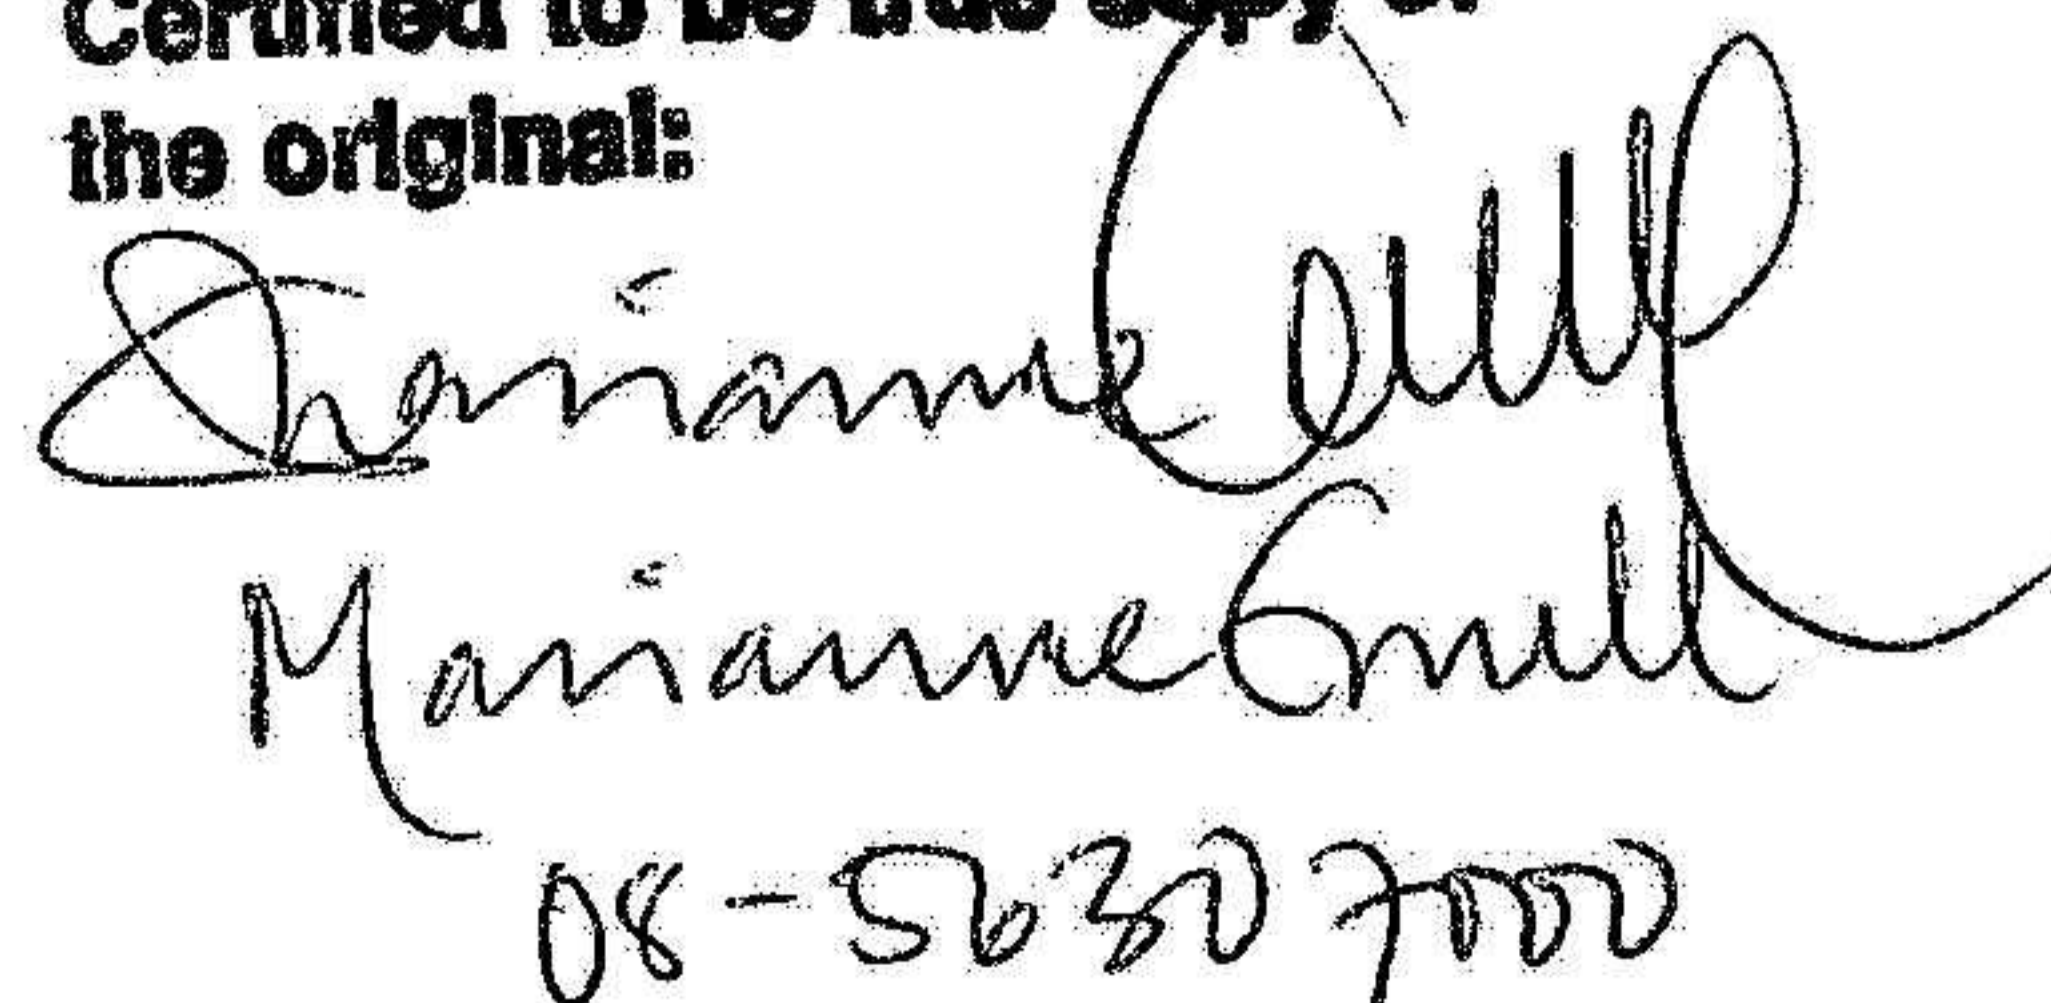 Certified to be true copy of
the original:
Marianne
Marianne
08-5630 7000